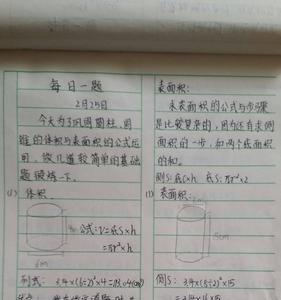 每日一题
2月25日
今天为了巩固圆柱、圆
锥的体积与表面积的公式运
用，做几道较简单的基础
题锻炼一下。
(1) 体积
公式：V=底S×h
=πr²×h
6cm
列式：3.14×(6÷2)²×4=113.04(cm³)
表面积：
求表面积的公式与步骤
是比较复杂的，因为还有求侧
面积的一步，和两个底面积
的和。
侧S：底C×h 底S：πr²×2
(1) 表面积：
5cm
侧S：3.14×(8÷2)²×15
=3.14×16